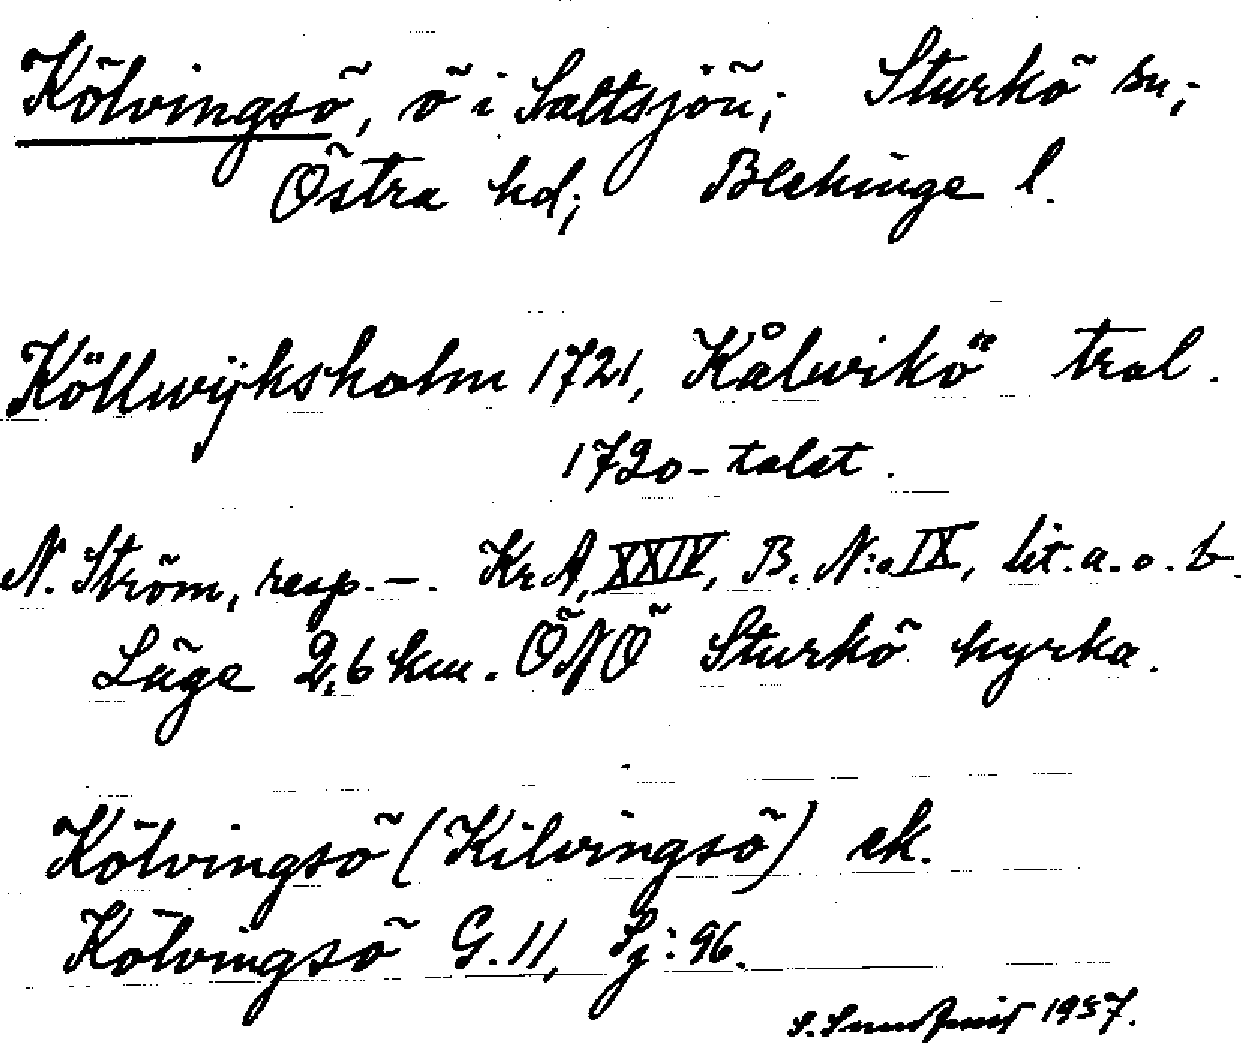 Kölvingsö, ö i Saltsjön; Sturkö sn;
Östra hd; Blekinge l.
Köllwijksholm 1721, Kålwikö tral.
1720-talet.
N. Ström, resp. –. KrA, XXIV, B. N:o IX, lit. a. o. b.
Läge 2,6 km. ÖNÖ Sturkö kyrka.
Kölvingsö (Kilvingsö) ek.
Kölvingsö G. 11, Sj: 96.
1957.